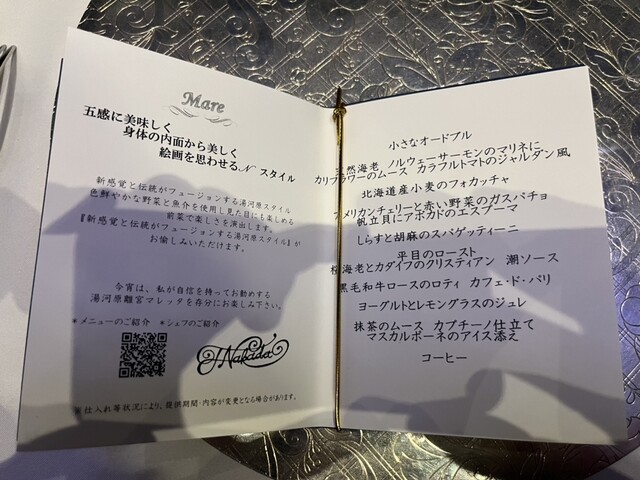 Mare
五感に美味しく
身体の内面から美しく
絵画を思わせるN スタイル
新感覚と伝統がフュージョンする湯河原スタイル
色鮮やかな野菜と魚介を使用し見た目にも楽しめる
前菜で楽しさを演出します。
『新感覚と伝統がフュージョンする湯河原スタイル』が
お愉しみいただけます。
今宵は、私が自信を持ってお勧めする
湯河原離宮マレッタを存分にお楽しみ下さい。
*メニューのご紹介 *シェフのご紹介
T.Nakada
※仕入れ等状況により、提供期間・内容が変更となる場合があります。
小さなオードブル
天然海老 ノルウェーサーモンのマリネに
カリフラワーのムース カラフルトマトのジャルダン風
北海道産小麦のフォカッチャ
アメリカンチェリーと赤い野菜のガスパチョ
帆立貝にアボカドのエスプーマ
しらすと胡麻のスパゲッティーニ
平目のロースト
海老とカダイフのクリスティアン 潮ソース
黒毛和牛ロースのロティ カフェ・ド・パリ
ヨーグルトとレモングラスのジュレ
抹茶のムース カプチーノ仕立て
マスカルポーネのアイス添え
コーヒー